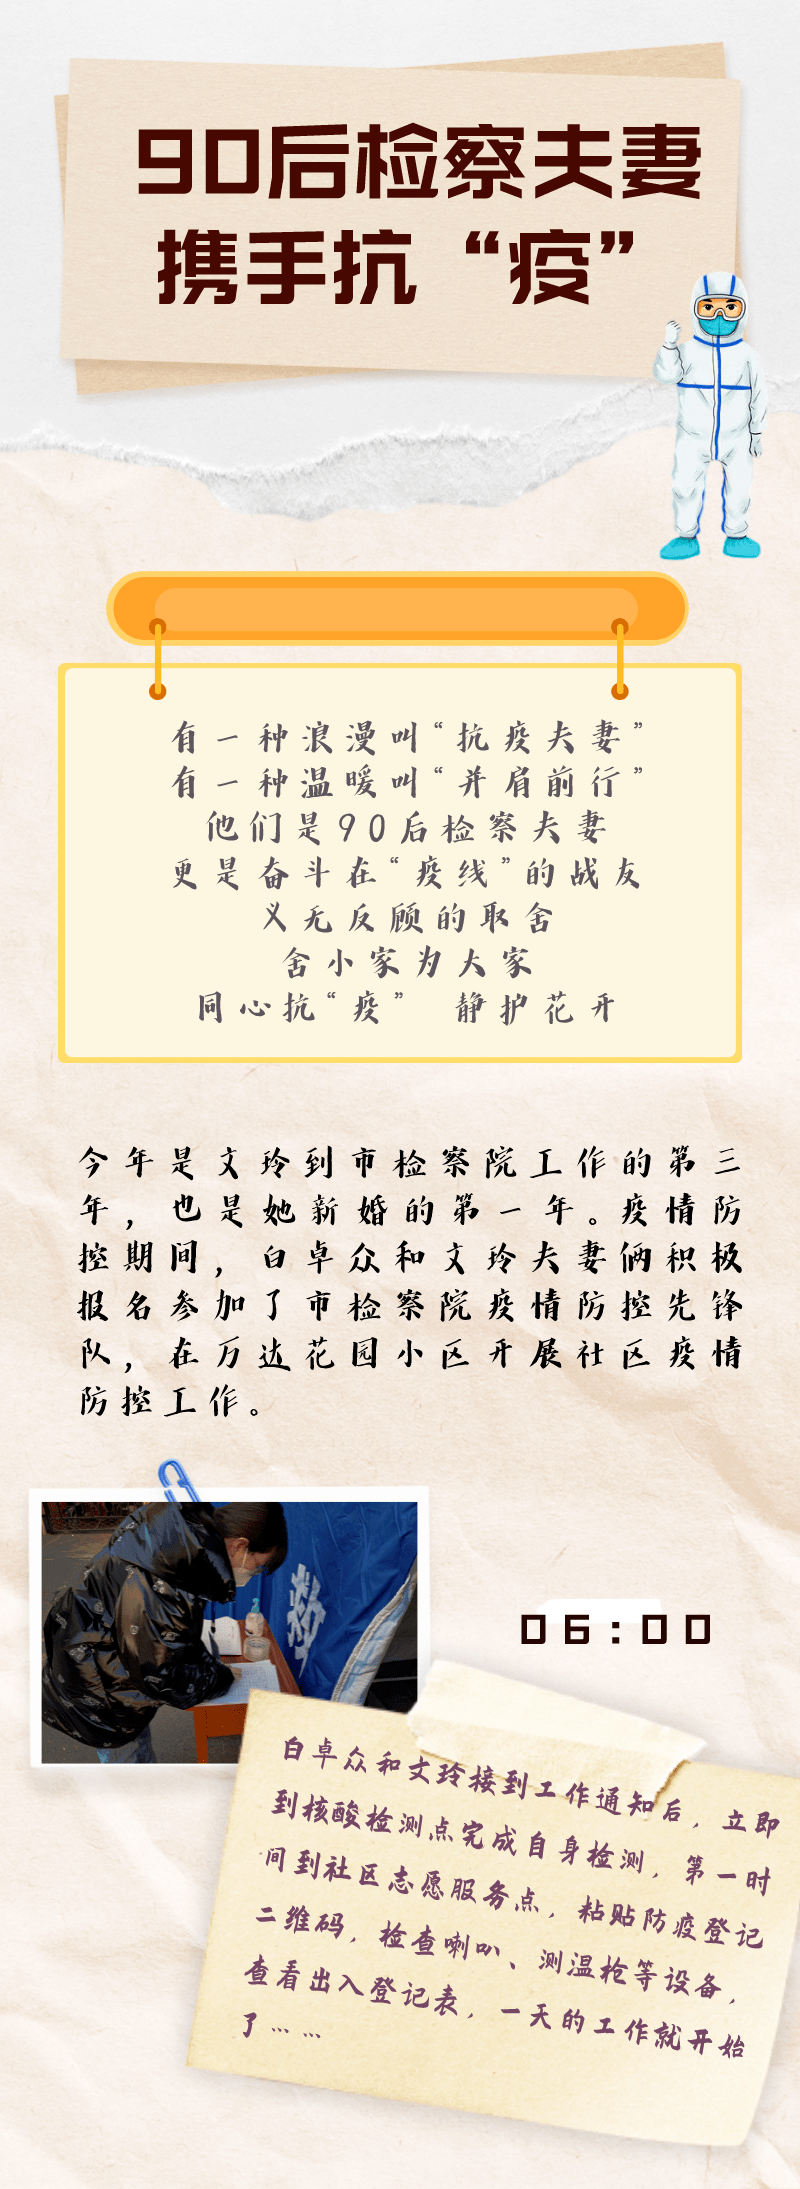 90后检察夫妻
携手抗“疫”
有一种浪漫叫“抗疫夫妻”
有一种温暖叫“并肩前行”
他们是90后检察夫妻
更是奋斗在“疫线”的战友
义无反顾的取舍
舍小家为大家
同心抗“疫” 静护花开
今年是文玲到市检察院工作的第三
年，也是她新婚的第一年。疫情防
控期间，白卓众和文玲夫妻俩积极
报名参加了市检察院疫情防控先锋
队，在万达花园小区开展社区疫情
防控工作。
救
06:00
白卓众和文玲接到工作通知后，立即
到核酸检测点完成自身检测，第一时
间到社区志愿服务点，粘贴防疫登记
二维码，检查喇叭、测温枪等设备，
查看出入登记表，一天的工作就开始
了……